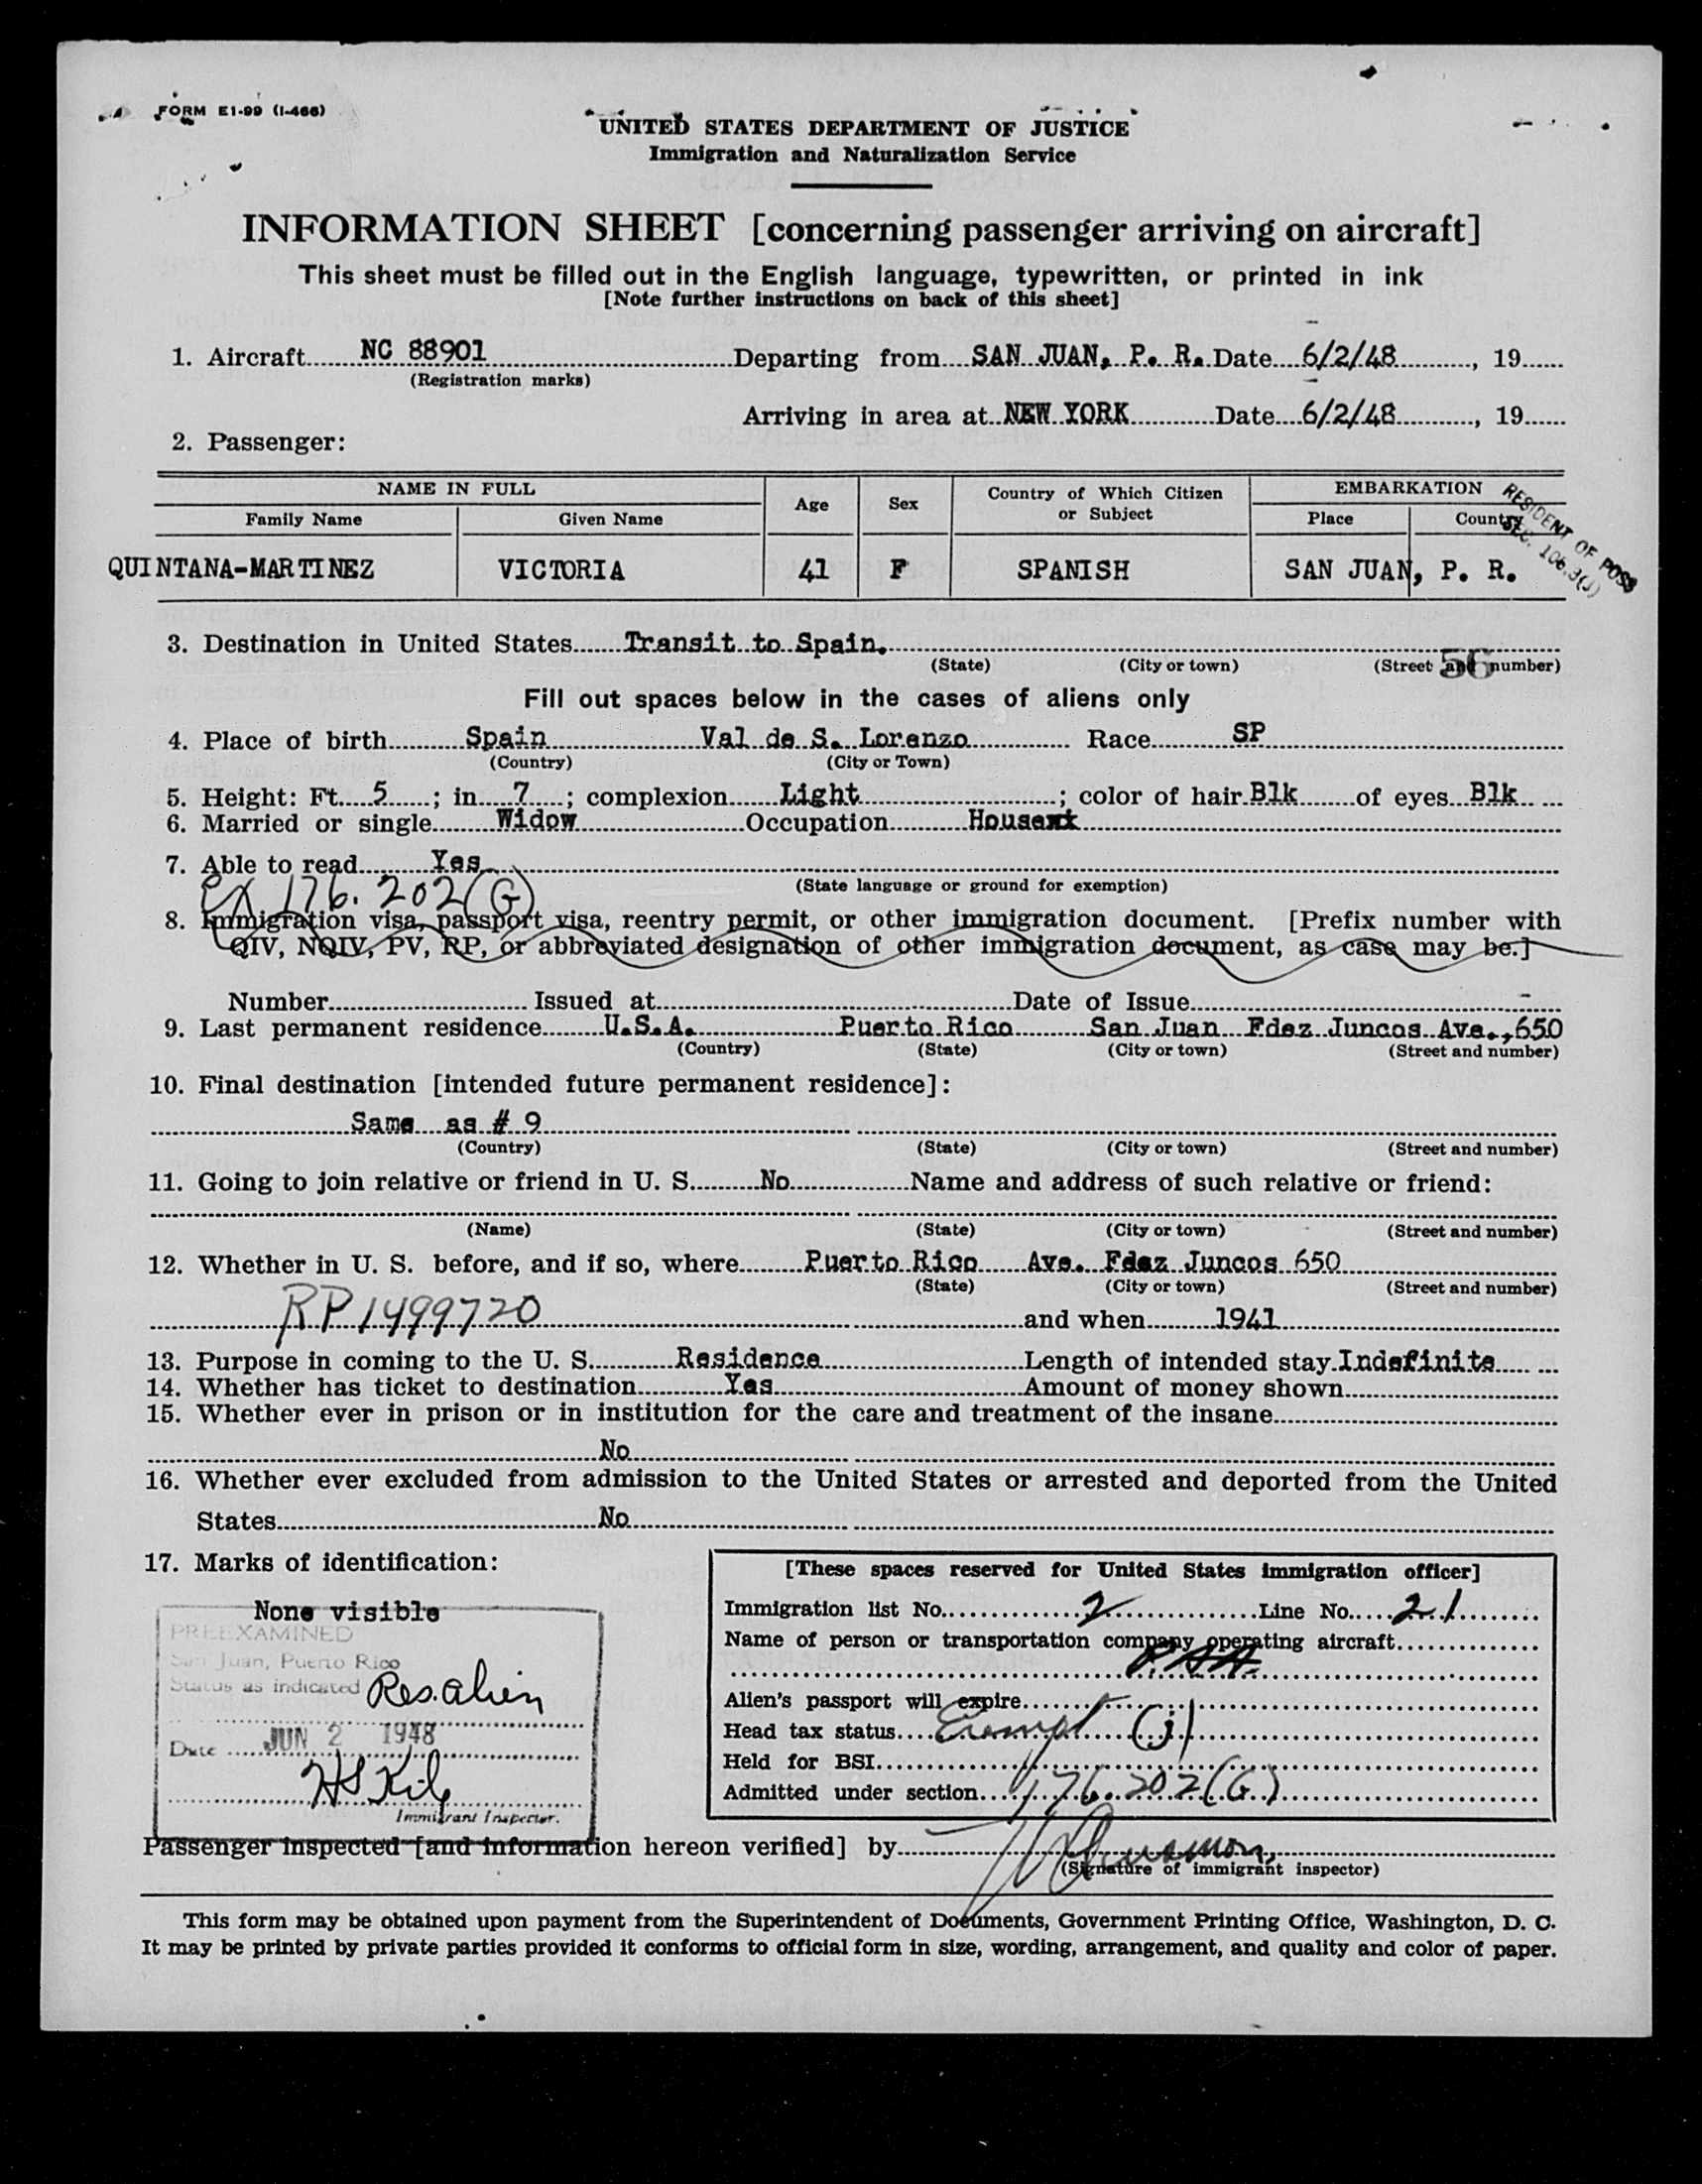 FORM E1-99 (I-466)
UNITED STATES DEPARTMENT OF JUSTICE
Immigration and Naturalization Service
INFORMATION SHEET [concerning passenger arriving on aircraft]
This sheet must be filled out in the English language, typewritten, or printed in ink
[Note further instructions on back of this sheet]
1. Aircraft NC 88901 Departing from SAN JUAN, P. R. Date 6/2/48, 19
(Registration marks)
Arriving in area at NEW YORK Date 6/2/48, 19
2. Passenger:
NAME IN FULL Age Sex Country of Which Citizen or Subject EMBARKATION
Family Name Given Name Place Country
RESIDENT OF POSS
SEC. 106.3(J)
QUINTANA-MARTINEZ VICTORIA 41 F SPANISH SAN JUAN, P. R.
3. Destination in United States Transit to Spain.
(State) (City or town) (Street and number)
56
Fill out spaces below in the cases of aliens only
4. Place of birth Spain Val de S. Lorenzo Race SP
(Country) (City or Town)
5. Height: Ft. 5; in. 7; complexion Light; color of hair Blk of eyes Blk
6. Married or single Widow Occupation
7. Able to read Yes
(State language or ground for exemption)
Ex 176.202(G)
8. Immigration visa, passport visa, reentry permit, or other immigration document. [Prefix number with
QIV, NQIV, PV, RP, or abbreviated designation of other immigration document, as case may be.]
Number Issued at Date of Issue
9. Last permanent residence U.S.A. Puerto Rico San Juan Fdez Juncos Ave., 650
(Country) (State) (City or town) (Street and number)
10. Final destination [intended future permanent residence]:
Same as # 9
(Country) (State) (City or town) (Street and number)
11. Going to join relative or friend in U. S. No Name and address of such relative or friend:
(Name) (State) (City or town) (Street and number)
12. Whether in U. S. before, and if so, where Puerto Rico Ave. Fdez Juncos 650
(State) (City or town) (Street and number)
RP 1499720 and when 1941
13. Purpose in coming to the U. S. Residence Length of intended stay Indefinite
14. Whether has ticket to destination Yes Amount of money shown
15. Whether ever in prison or in institution for the care and treatment of the insane
No
16. Whether ever excluded from admission to the United States or arrested and deported from the United
States No
17. Marks of identification:
None visible
PREEXAMINED
San Juan, Puerto Rico
Status as indicated Res. alien
Date JUN 2 1948
Immigrant Inspector.
[These spaces reserved for United States immigration officer]
Immigration list No. 2 Line No. 21
Name of person or transportation company operating aircraft
P.A.A.
Alien's passport will expire
Head tax status Exempt (j)
Held for BSI
Admitted under section 176.202(G)
Passenger inspected [and information hereon verified] by
(Signature of immigrant inspector)
This form may be obtained upon payment from the Superintendent of Documents, Government Printing Office, Washington, D. C.
It may be printed by private parties provided it conforms to official form in size, wording, arrangement, and quality and color of paper.